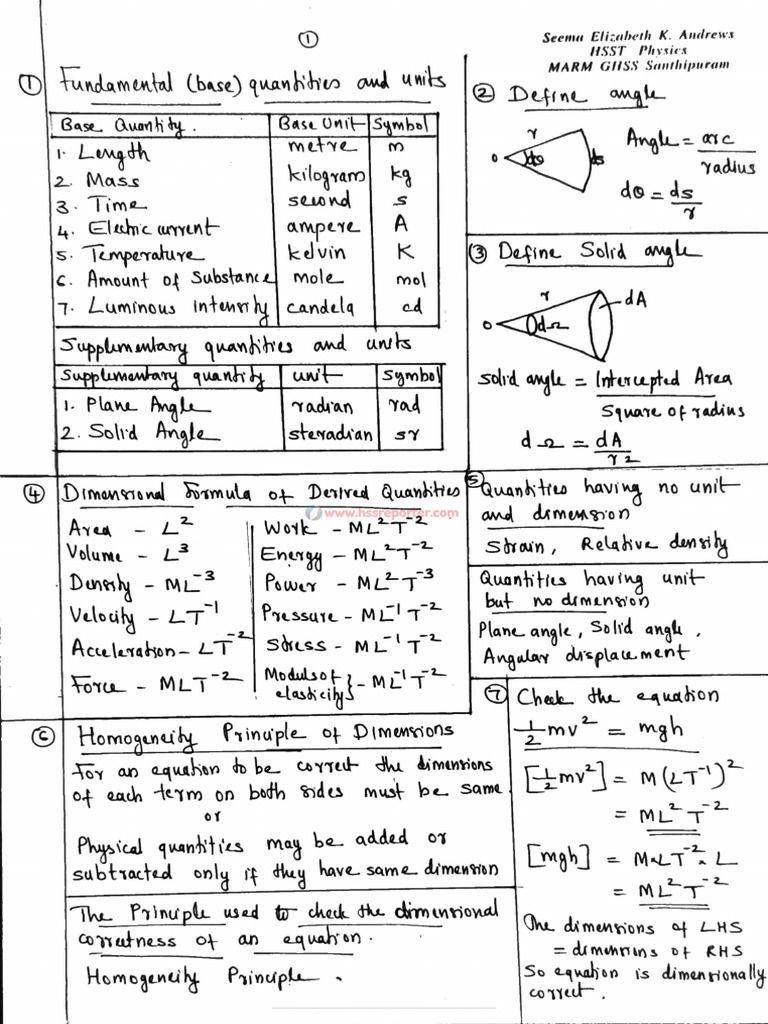 ①
Seema Elizabeth K. Andrews
HSST Physics
MARM GHSS Santhipuram
① Fundamental (base) quantities and units
Base Quantity. Base Unit Symbol
1. Length metre m
2. Mass kilogram kg
3. Time second s
4. Electric current ampere A
5. Temperature kelvin K
6. Amount of Substance mole mol
7. Luminous intensity candela cd
Supplementary quantities and units
Supplementary quantity unit symbol
1. Plane Angle radian rad
2. Solid Angle steradian sr
② Define angle
r
o dθ ds
Angle = arc / radius
dθ = ds / r
③ Define Solid angle
r
dA
o dΩ
Solid angle = Intercepted Area / Square of radius
dΩ = dA / r²
④ Dimensional Formula of Derived Quantities
www.hssreporter.com
Area - L²
Volume - L³
Density - ML⁻³
Velocity - LT⁻¹
Acceleration - LT⁻²
Force - MLT⁻²
Work - ML²T⁻²
Energy - ML²T⁻²
Power - ML²T⁻³
Pressure - ML⁻¹T⁻²
Stress - ML⁻¹T⁻²
Moduls of
elasticity } - ML⁻¹T⁻²
⑤ Quantities having no unit
and dimension
Strain, Relative density
Quantities having unit
but no dimension
Plane angle, Solid angle,
Angular displacement
⑥ Homogeneity Principle of Dimensions
For an equation to be correct the dimensions
of each term on both sides must be same
or
Physical quantities may be added or
subtracted only if they have same dimension
The Principle used to check the dimensional
correctness of an equation.
Homogeneity Principle.
⑦ Check the equation
½mv² = mgh
[½mv²] = M(LT⁻¹)²
= ML²T⁻²
[mgh] = M·LT⁻²·L
= ML²T⁻²
The dimensions of LHS
= dimensions of RHS
So equation is dimensionally
correct.